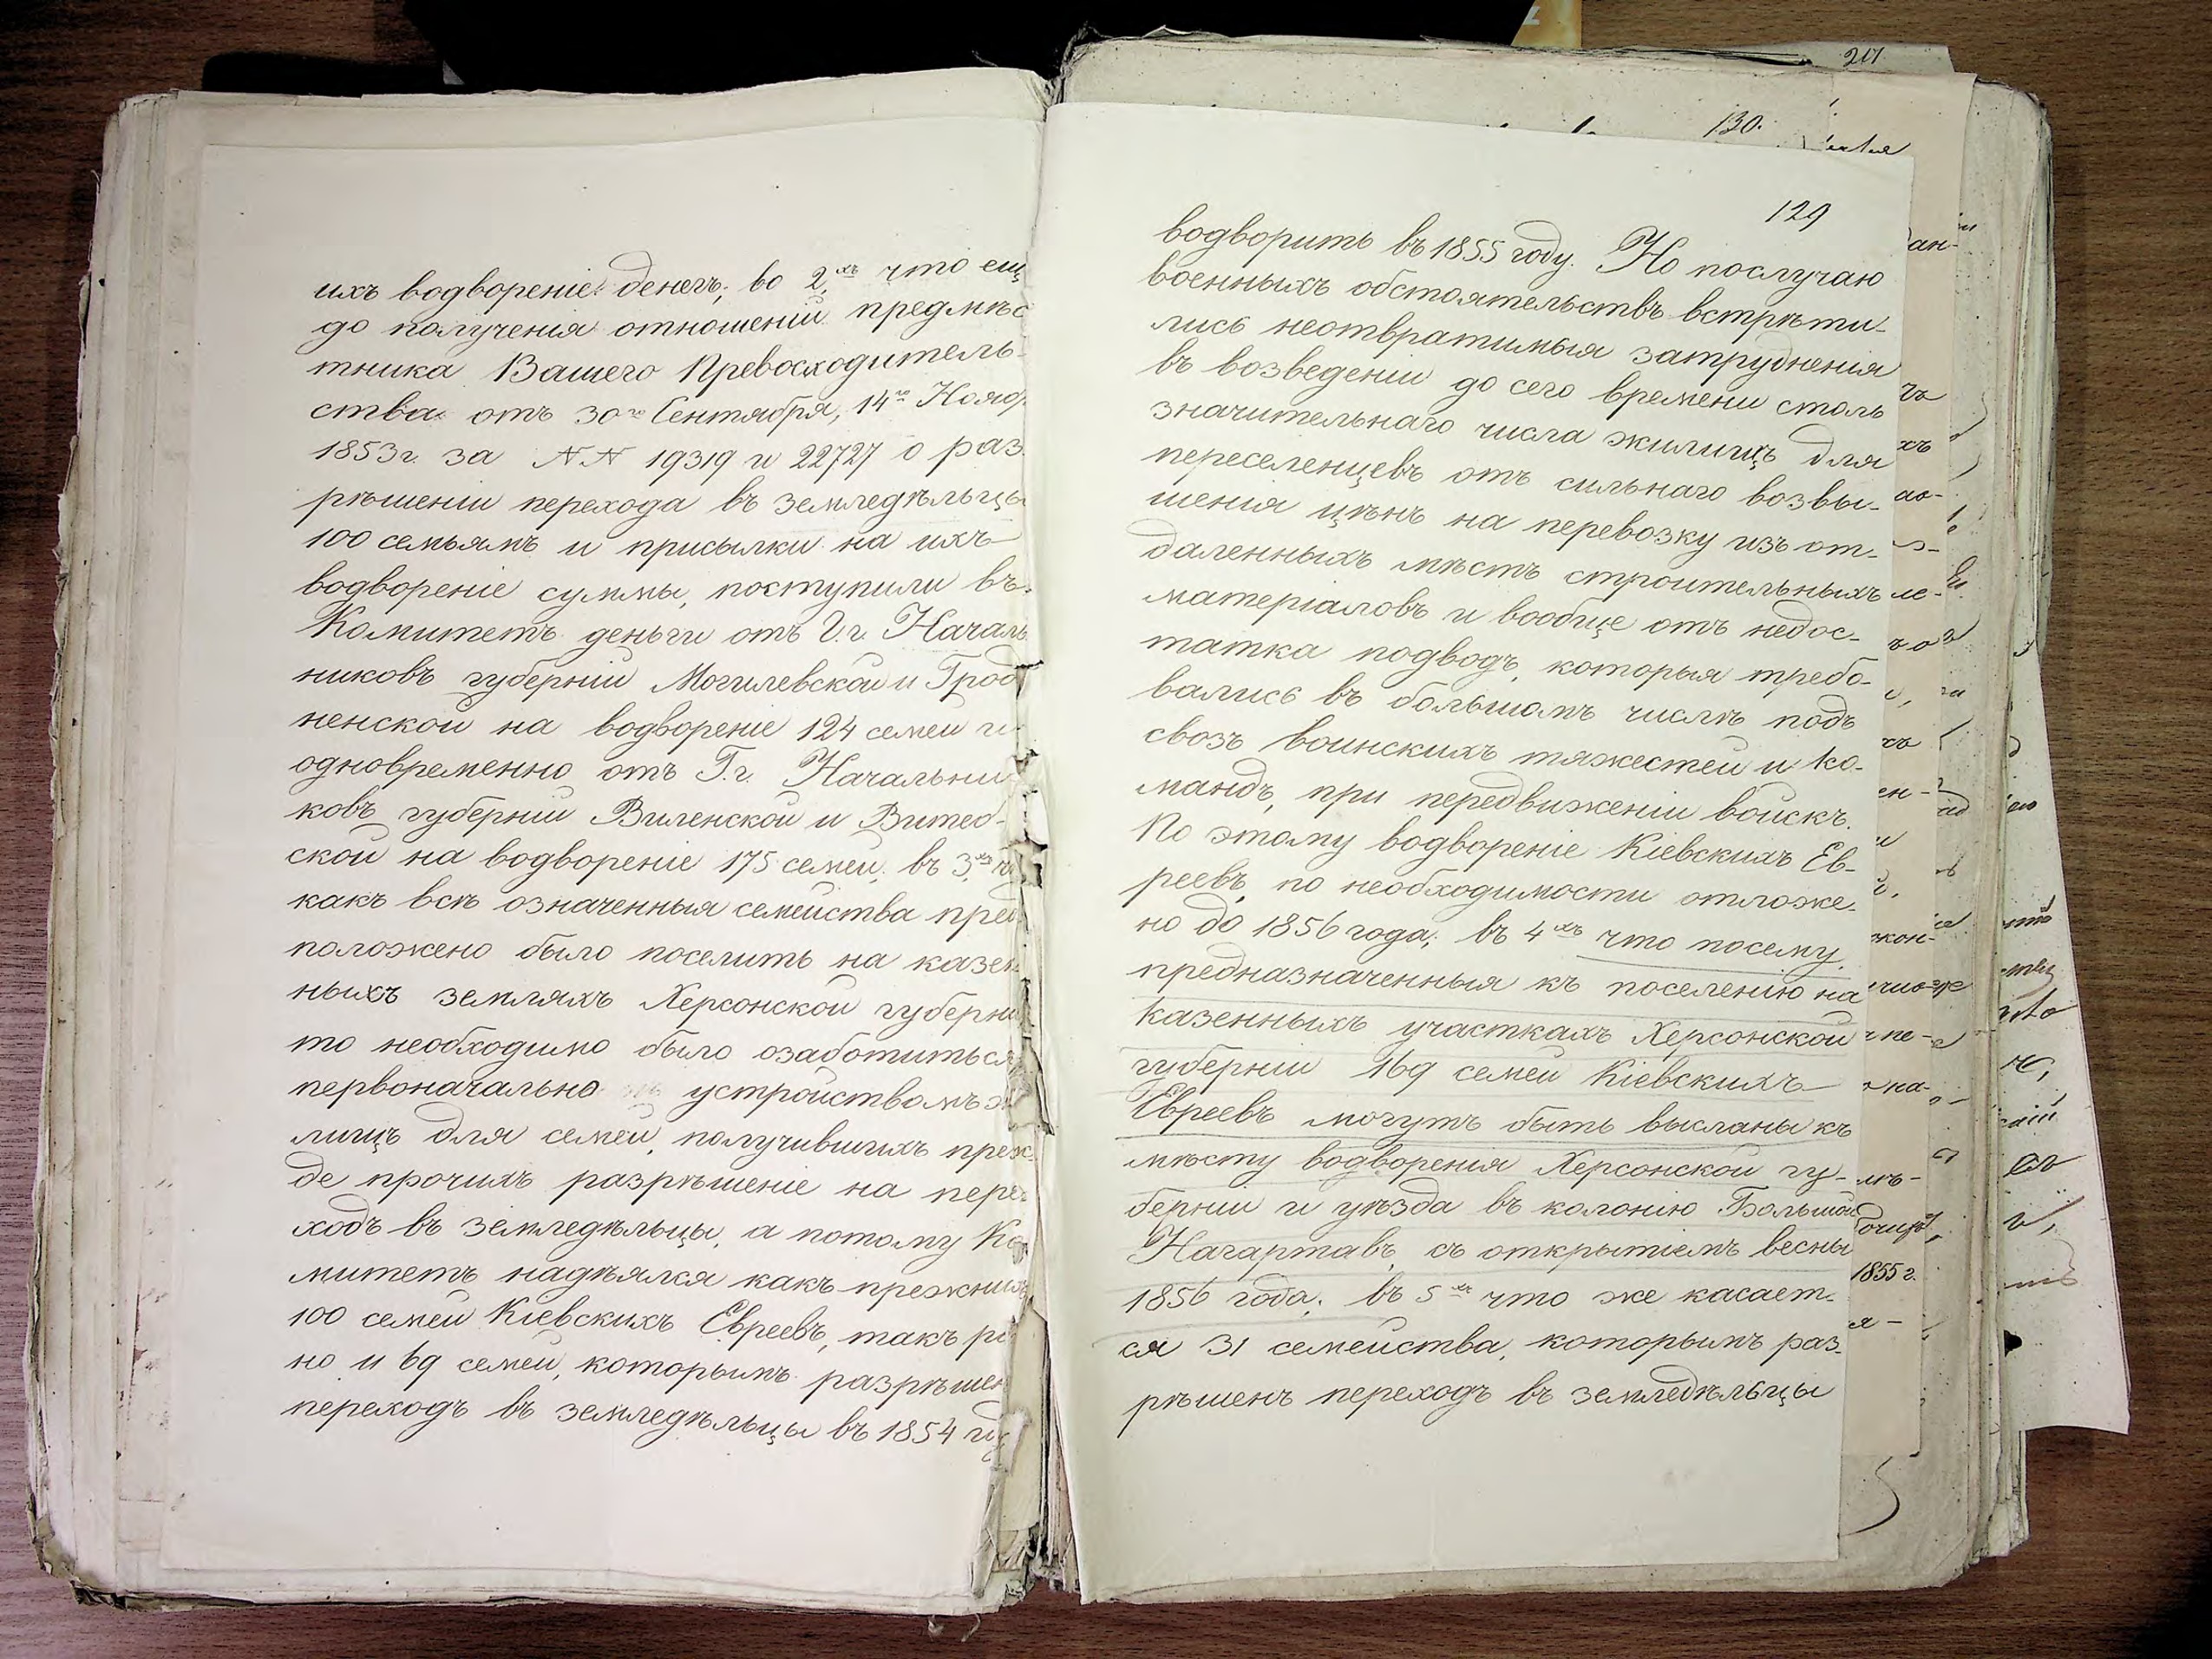 ихъ водвореніе денегъ; во 2хъ что ещ
до полученія отношеній предмѣс
тника Вашего Превосходитель-
ства отъ 30го Сентября, 14го Нояб
1853 г. за NN 19319 и 22727 о раз
рѣшеніи перехода въ земледѣльцы
100 семьямъ и присылки на ихъ
водвореніе суммы, поступили въ
Комитетъ деньги отъ Г.г. Началь
никовъ губерній Могилевской и Грод
ненской на водвореніе 124 семей и
одновременно отъ Г.г. Начальни
ковъ губерній Виленской и Витеб-
ской на водвореніе 175 семей; въ 3хъ
какъ всѣ означенныя семейства пред
положено было поселить на казен
ныхъ земляхъ Херсонской губерні
то необходимо было озаботиться
первоначально устройствомъ
лищъ для семей, получившихъ преж
де прочихъ разрѣшеніе на пере
ходъ въ земледѣльцы, а потому Ко
митетъ надѣялся какъ прежнихъ
100 семей Кіевскихъ Евреевъ, такъ ра
но и 69 семей, которымъ разрѣшен
переходъ въ земледѣльцы въ 1854 го
211
130.
129
водворить въ 1855 году. Но послучаю
военныхъ обстоятельствъ встрѣти-
лись неотвратимыя затрудненія
въ возведеніи до сего времени столь
значительнаго числа жилищъ для
переселенцевъ отъ сильнаго возвы-
шенія цѣнъ на перевозку изъ от-
даленныхъ мѣстъ строительныхъ
матеріаловъ и вообще отъ недос-
татка подводъ, которыя требо-
вались въ большомъ числѣ подъ
свозъ воинскихъ тяжестей и ко-
мандъ, при передвиженіи войскъ.
По этому водвореніе Кіевскихъ Ев-
реевъ, по необходимости отложе-
но до 1856 года; въ 4хъ что посему
предназначенныя къ поселенію на
казенныхъ участкахъ Херсонской
губерніи 169 семей Кіевскихъ
Евреевъ могутъ быть высланы къ
мѣсту водворенія Херсонской гу-
берніи и уѣзда въ колонію Большой
Нагартавъ, съ открытіемъ весны
1856 года; въ 5хъ что же касает-
ся 31 семейства, которымъ раз-
рѣшенъ переходъ въ земледѣльцы
1855 г.